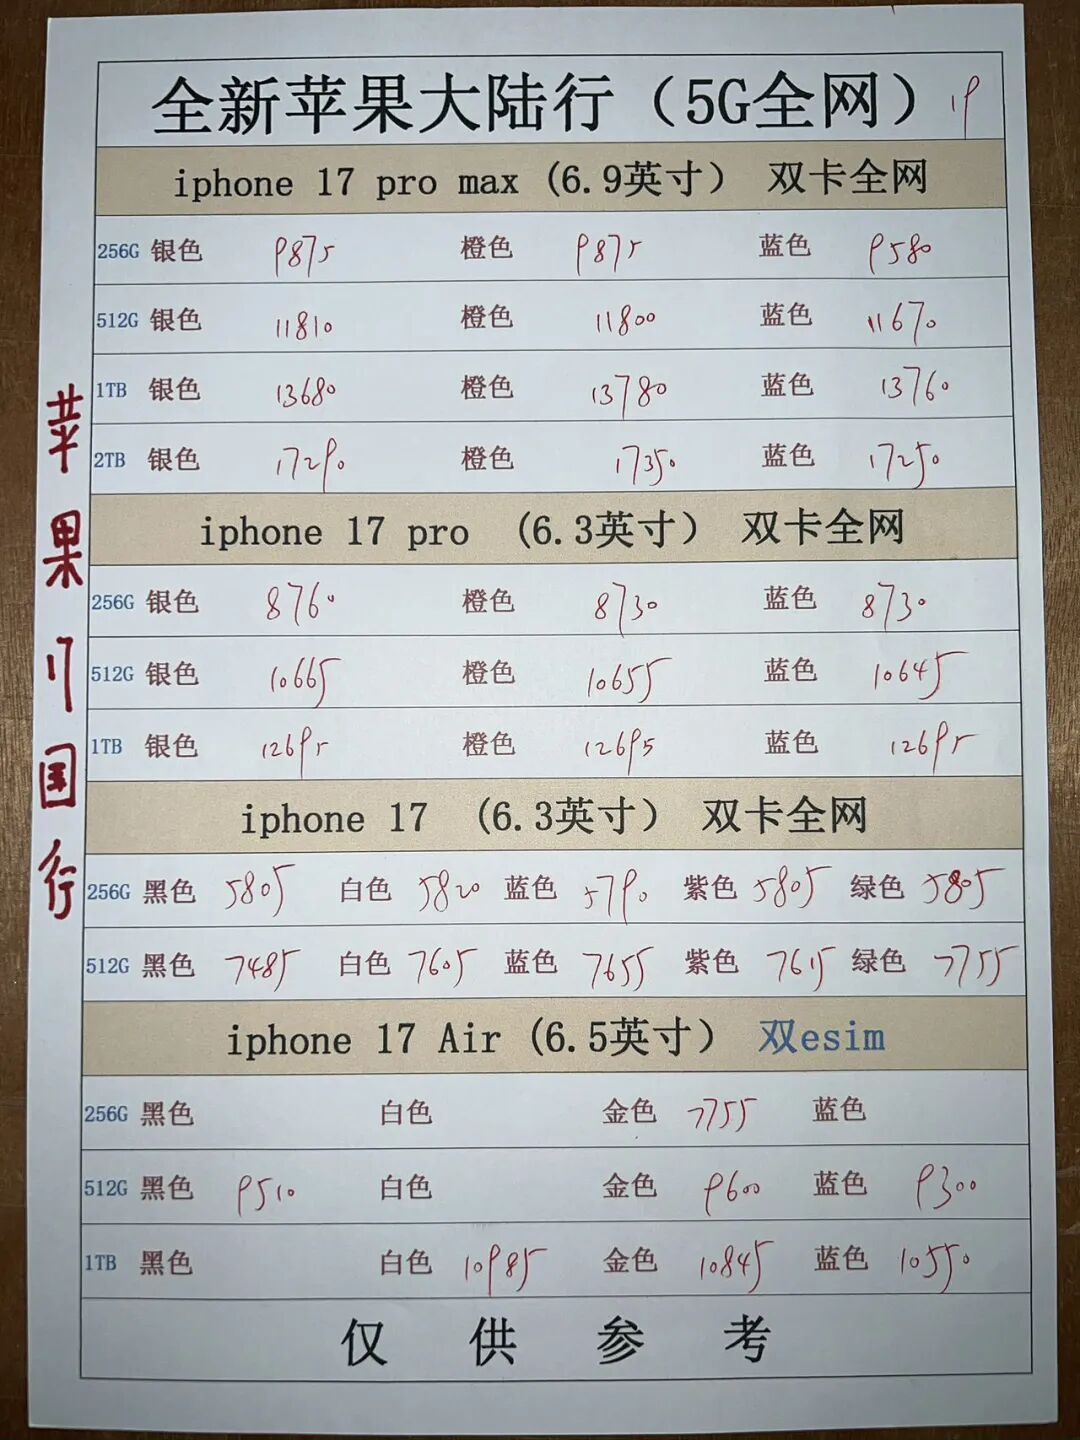 全新苹果大陆行（5G全网）19
iphone 17 pro max (6.9英寸） 双卡全网
256G 银色 9875 橙色 9875 蓝色 9580
512G 银色 11810 橙色 11800 蓝色 11670
1TB 银色 13680 橙色 13780 蓝色 13760
2TB 银色 17290 橙色 17350 蓝色 17250
iphone 17 pro （6.3英寸） 双卡全网
256G 银色 8760 橙色 8730 蓝色 8730
512G 银色 10665 橙色 10655 蓝色 10645
1TB 银色 12695 橙色 12695 蓝色 12695
iphone 17 （6.3英寸） 双卡全网
256G 黑色 5805 白色 5820 蓝色 5790 紫色 5805 绿色 5805
512G 黑色 7485 白色 7605 蓝色 7655 紫色 7615 绿色 7755
iphone 17 Air (6.5英寸） 双esim
256G 黑色 白色 金色 7755 蓝色
512G 黑色 9510 白色 金色 9600 蓝色 9300
1TB 黑色 白色 10985 金色 10845 蓝色 10550
仅供参考
苹果17国行